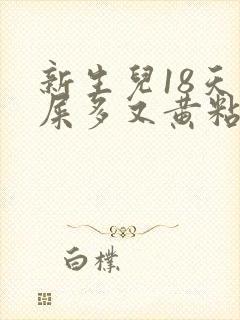 新生兒18天
屎多又黃粘
白樸